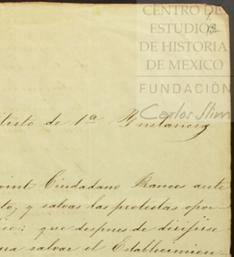 CENTRO DE
ESTUDIOS
DE HISTORIA
DE MEXICO
FUNDACIÓN
Carlos Slim
de 1ª Instancia
Ciudadano Ramos ante
to, y salvas las protestas opor-
que despues de
salvar el Establecimien-